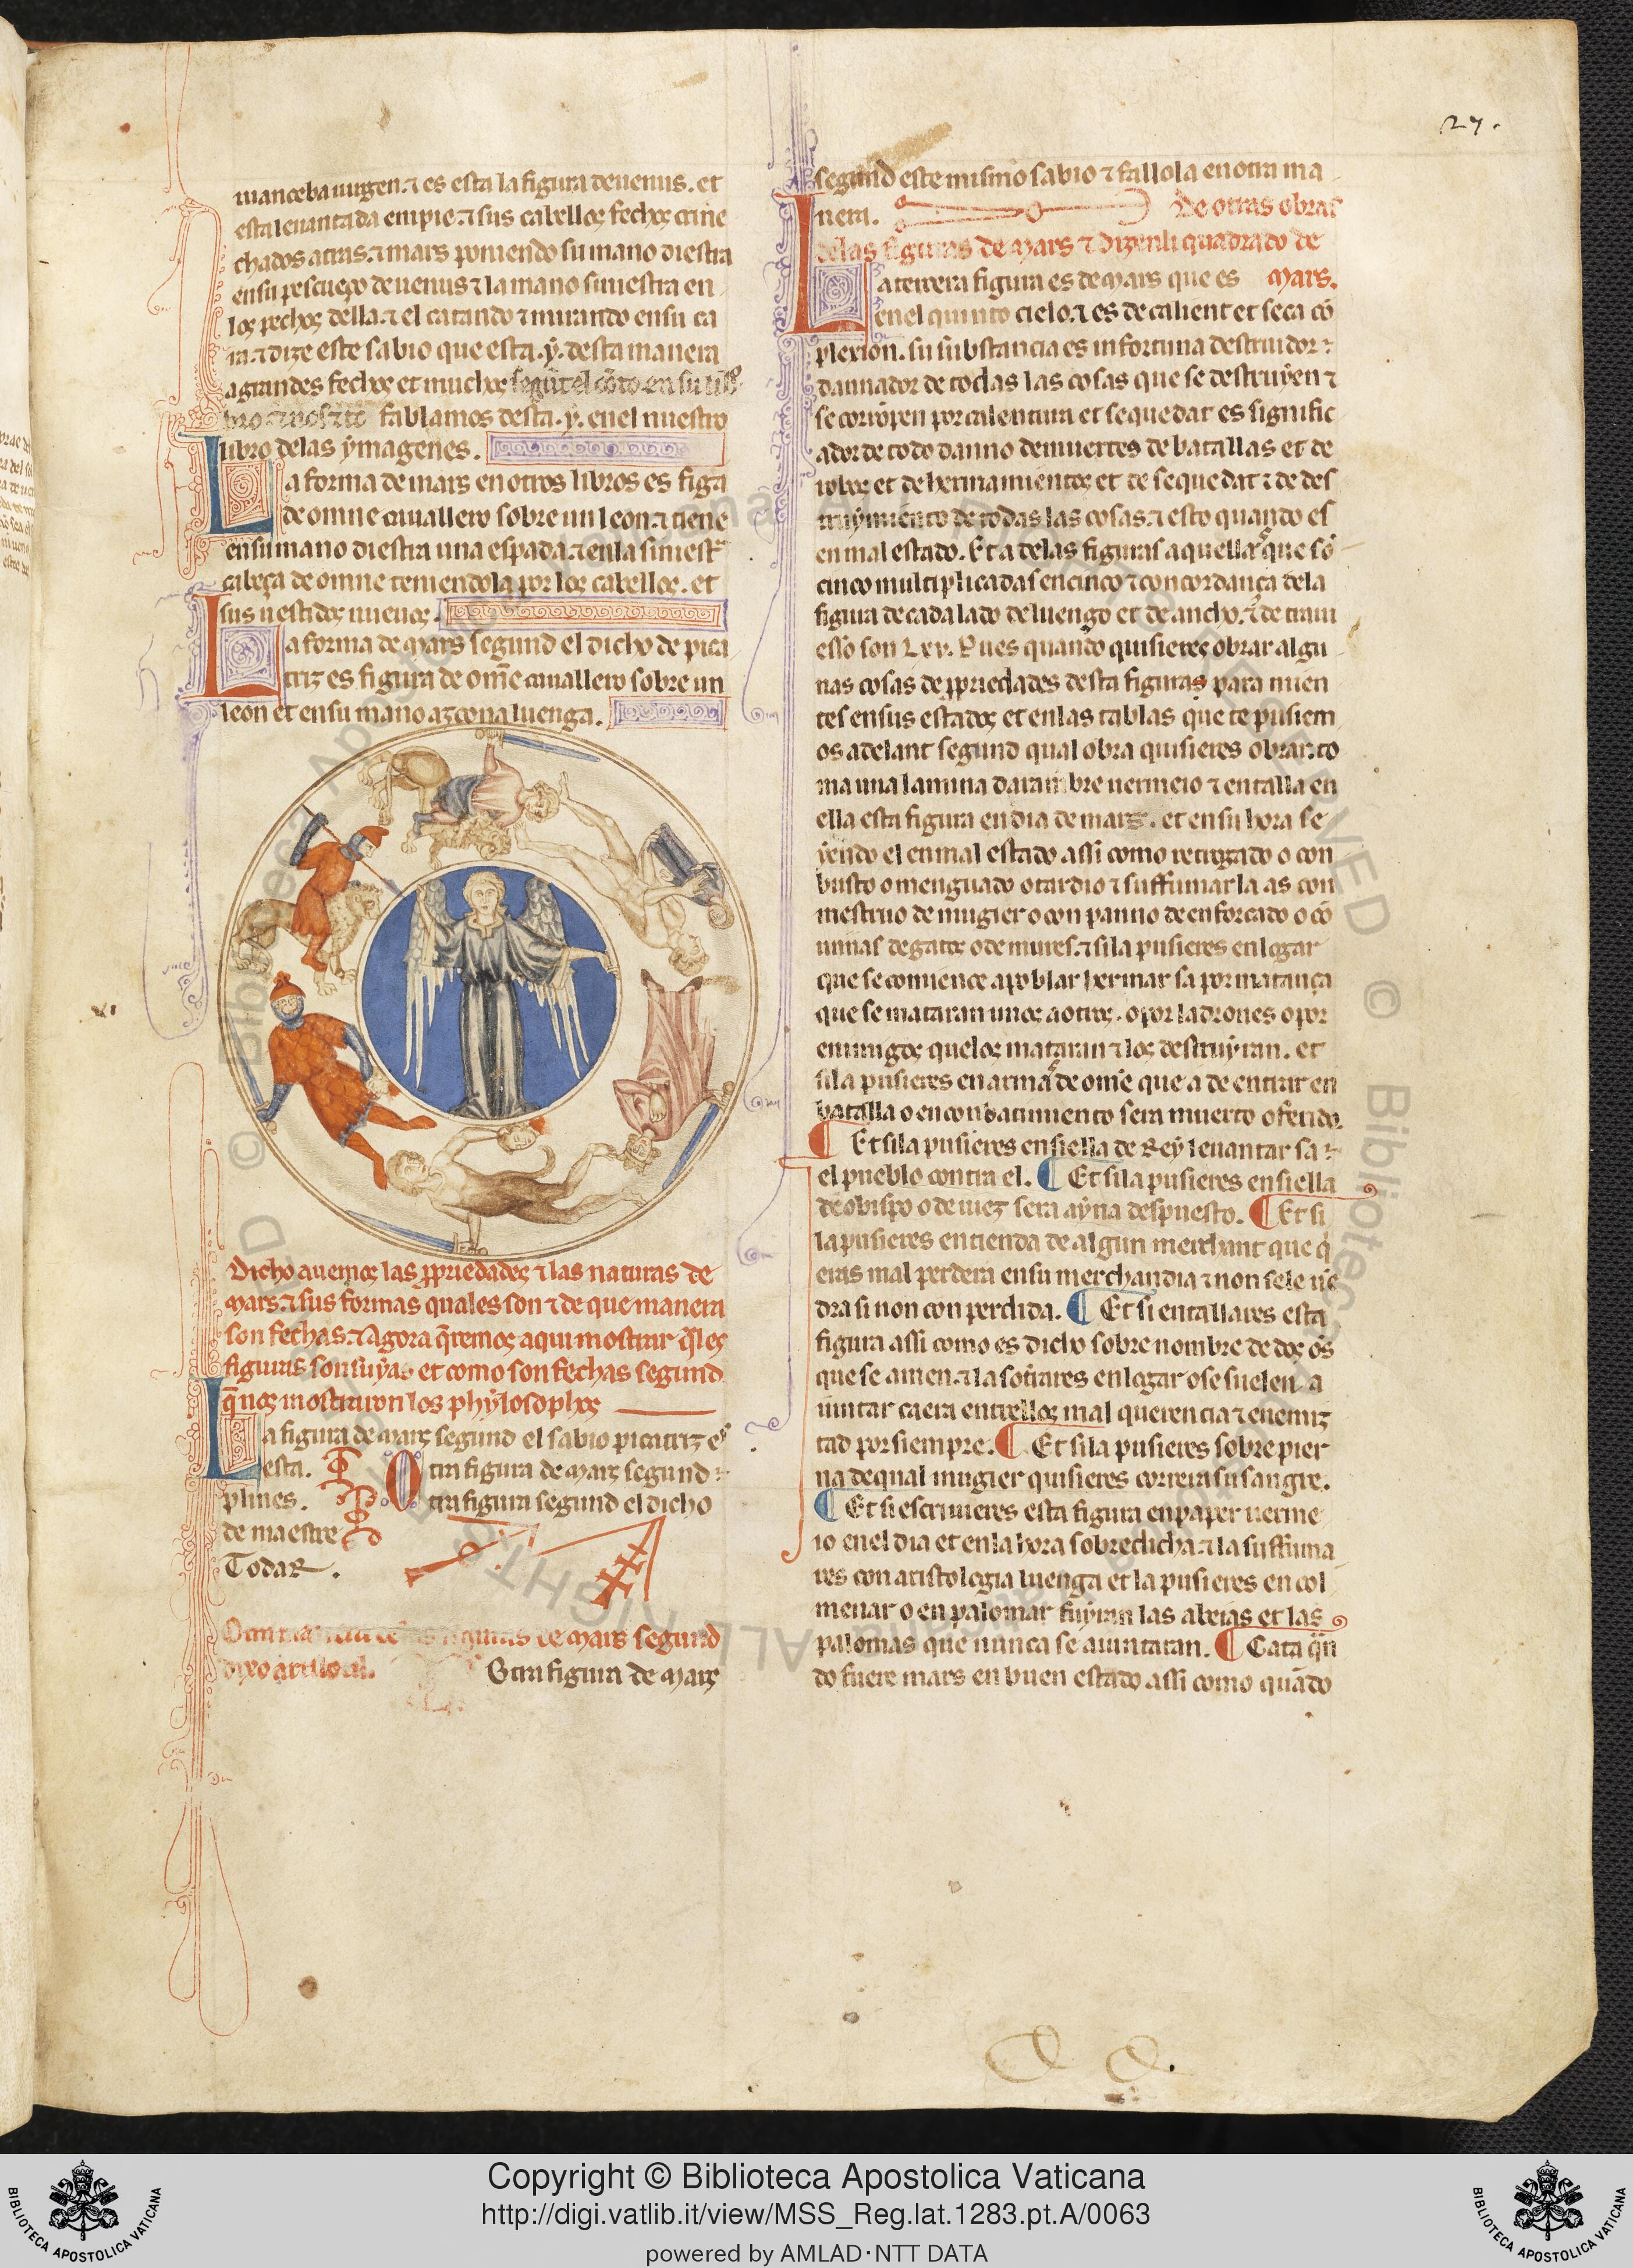 27.
manceba uirgen. ⁊ es esta la figura de uenus. et
esta leuantada en pie. ⁊ sus cabellos fechos crine
chados atras. ⁊ mars poniendo su mano diestra
en su pescueço de uenus ⁊ la mano siniestra en
los pechos della. ⁊ el catando ⁊ mirando en su ca
ra. ⁊ dize este sabio que esta .ẏ. desta manera
a grandes fechos et muchos
fablamos desta .ẏ. en el nuestro
libro delas ẏmagenes.
La forma de mars en otros libros es figa
de omne cauallero sobre un leon. ⁊ tiene
en su mano diestra una espada. ⁊ en la siniestra
cabeça de omne teniendola por los cabellos. et
sus uestidos nueuos.
La forma de mars segund el dicho de pica
triz es figura de om̃e cauallero sobre un
leon et en su mano azcona luenga.
Dicho auemos las ꝓpriedades ⁊ las naturas de
mars. ⁊ sus formas quales son ⁊ de que manera
son fechas. ⁊ Agora q̃remos aqui mostrar q̃les
figuras son suẏas et como son fechas segund
q̃ nos mostraron los phẏlosophos
La figura de mars segund el sabio picatriz es
esta.
Otra figura de mars segund
plines.
Otra figura segund el dicho
de maestre
Todar.
figuras de mars segund
dixo
Otra figura de mars
segund este mismo sabio ⁊ fallola en otra ma
nera.
De otras obras
delas figuras de mars ⁊ dizenli quadrado de
mars.
La tercera figura es de mars que es
en el quinto cielo. ⁊ es de calient et seca cõ
plexion. su substancia es infortuna destruidor ⁊
dannador de todas las cosas que se destruẏen ⁊
se corrõpen por calentura et sequedat es signific
ador de todo danno de muertes de batallas et de
robos et de hermamientos et de sequedat ⁊ de des
truẏmiento de todas las cosas. ⁊ esto quando es
en mal estado. Et a delas figuras aquella que sõ
cinco multiplicadas en cinco ⁊ concordança dela
figura de cada lado de luengo et de ancho. ⁊ de traui
esso son Lxv. Pues quando quisieres obrar algu
nas cosas de ꝓpriedades desta figuras para mien
tes en sus estados et en las tablas que te pusiem
os adelant segund qual obra quisieres obrar. to
ma una lamina darambre uermeio ⁊ entalla en
ella esta figura en dia de mars. et en su hora se
ẏendo el en mal estado assi como retrogado o con
busto o menguado o tardio ⁊ suffumarla as con
mestruo de mugier o con panno de enforcado o cõ
urinas de gatos o de mures. ⁊ si la pusieres en logar
que se comience a poblar hermar sa por matança
que se mataran unos a otros. o por ladrones o por
enimigos que los mataran ⁊ los destruẏran. et
si la pusieres en arma de om̃e que a de entrar en
batalla o en conbatimiento sera muerto o ferido.
¶ Et si la pusieres en siella de Reẏ leuantar sa
el pueblo contra el. ¶ Et si la pusieres en siella
de obispo o de iuez sera aẏna despuesto. ¶ Et si
la pusieres en tienda de algun merchant que q̃
eras mal perdera en su merchandia ⁊ non se le uẽ
dra si non con perdida. ¶ Et si entallares esta
figura assi como es dicho sobre nombre de dos õs
que se amen. ⁊ la soterares en logar o se suelen a
iuntar caera entrellos mal querencia ⁊ enemiz
tad por siempre. ¶ Et si la pusieres sobre pier
na de qual mugier quisieres correra su sangre.
¶ Et si escriuieres esta figura en paper uerme
io en el dia et en la hora sobredicha. ⁊ la suffuma
res con aristologia luenga et la pusieres en col
menar o en palomar fuẏran las abeias et las
palomas que nunca se aiuntaran. ¶ Cata quã
do fuere mars en buen estado assi como quãdo
Copyright © Biblioteca Apostolica Vaticana
http://digi.vatlib.it/view/MSS_Reg.lat.1283.pt.A/0063
powered by AMLAD·NTT DATA
BIBLIOTECA APOSTOLICA VATICANA
BIBLIOTECA APOSTOLICA VATICANA